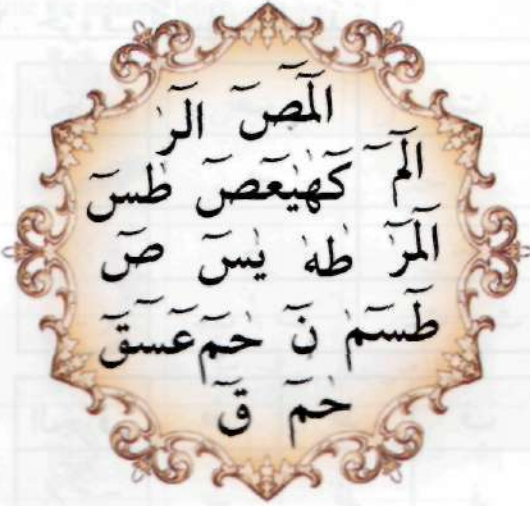 الٓمٓصٓ الٓرٰ
الٓمٓ كٓهٰيٰعٓصٓ طٰسٓ
الٓمٓرٰ طٰهٰ يٰسٓ صٓ
طٰسٓمٓ نٓ حٰمٓ عٓسٓقٓ
حٰمٓ قٓ